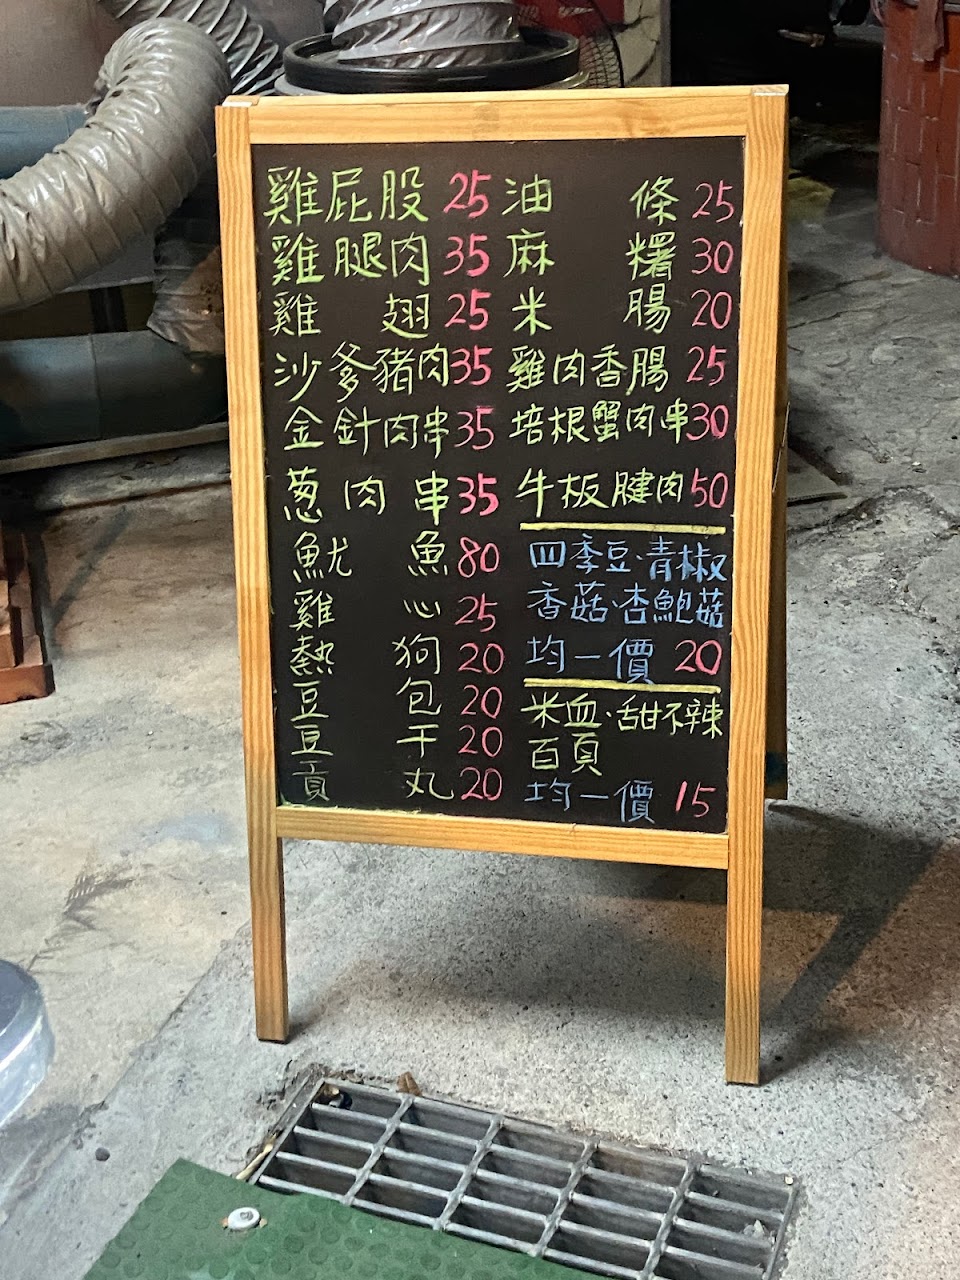 雞屁股 25
雞腿肉 35
雞翅 25
沙爹豬肉 35
金針肉串 35
蔥肉串 35
魷魚 80
雞心 25
熱狗 20
豆包 20
豆干 20
貢丸 20
油條 25
麻糬 30
米腸 20
雞肉香腸 25
培根蟹肉串 30
牛板腱肉 50
四季豆·青椒
香菇·杏鮑菇
均一價 20
米血·甜不辣
百頁
均一價 15